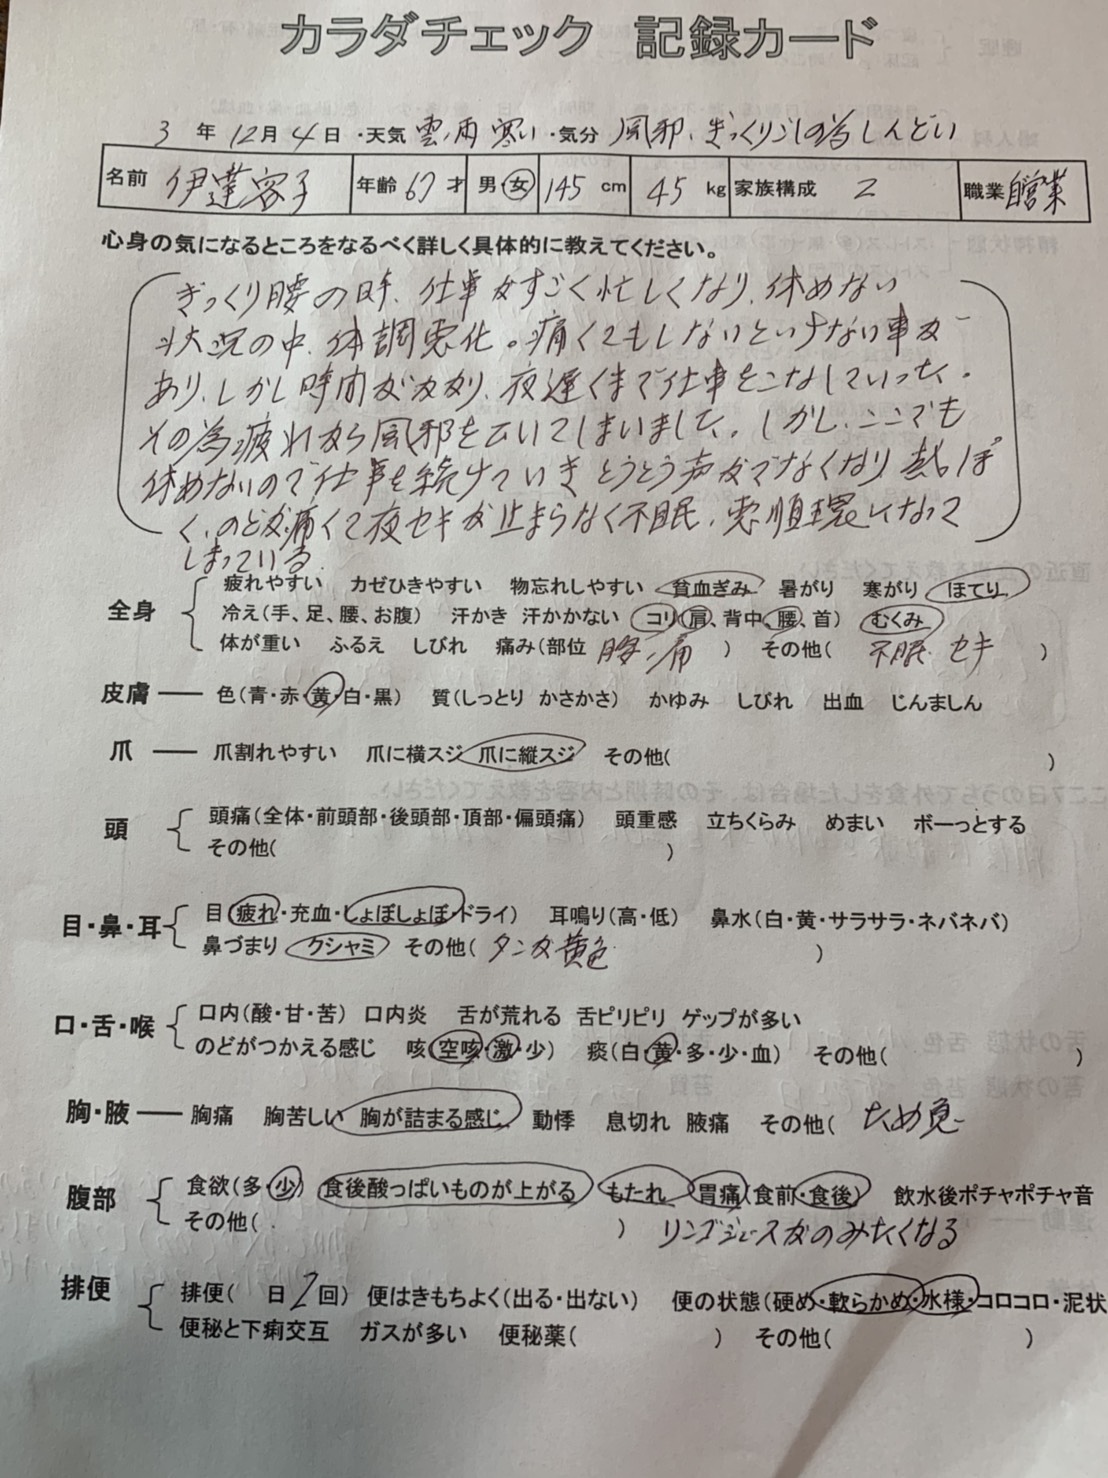 カラダチェック 記録カード
3 年 12月 4日 ・天気 雲、雨 寒い ・気分 風邪、ぎっくりごしの為しんどい
名前 伊達容子 年齢 67 才 男・女 145 cm 45 kg 家族構成 2 職業 自営業
心身の気になるところをなるべく詳しく具体的に教えてください。
ぎっくり腰の時、仕事がすごく忙しくなり、休めない
状況の中、体調悪化。痛くてもしないといけない事が
あり、しかし時間がかかり、夜遅くまで仕事をこなしていった。
その為疲れから風邪をひいてしまいました。しかし、ここでも
休めないので仕事を続けていき とうとう声がでなくなり 熱っぽ
く、のどが痛くて夜セキが止まらなく不眠、悪順環になって
しまっている。
疲れやすい カゼひきやすい 物忘れしやすい 貧血ぎみ 暑がり 寒がり ほてり
全身 冷え(手、足、腰、お腹) 汗かき 汗かかない コリ(肩、背中、腰、首) むくみ
体が重い ふるえ しびれ 痛み(部位 腰痛 ) その他( 不眠 セキ )
皮膚 色(青・赤・黄・白・黒) 質(しっとり かさかさ) かゆみ しびれ 出血 じんましん
爪 爪割れやすい 爪に横スジ 爪に縦スジ その他( )
頭 頭痛(全体・前頭部・後頭部・頂部・偏頭痛) 頭重感 立ちくらみ めまい ボーっとする
その他( )
目・鼻・耳 目(疲れ・充血・しょぼしょぼ・ドライ) 耳鳴り(高・低) 鼻水(白・黄・サラサラ・ネバネバ)
鼻づまり クシャミ その他( タンが黄色 )
口・舌・喉 口内(酸・甘・苦) 口内炎 舌が荒れる 舌ピリピリ ゲップが多い
のどがつかえる感じ 咳(空咳・激・少) 痰(白・黄・多・少・血) その他( )
胸・腋 胸痛 胸苦しい 胸が詰まる感じ 動悸 息切れ 腋痛 その他( ため息
腹部 食欲(多・少) 食後酸っぱいものが上がる もたれ 胃痛(食前・食後) 飲水後ポチャポチャ音
その他( ) リンゴジュースがのみたくなる
排便 排便( 日 2 回) 便はきもちよく(出る・出ない) 便の状態(硬め・軟らかめ・水様・コロコロ・泥状
便秘と下痢交互 ガスが多い 便秘薬( ) その他( )